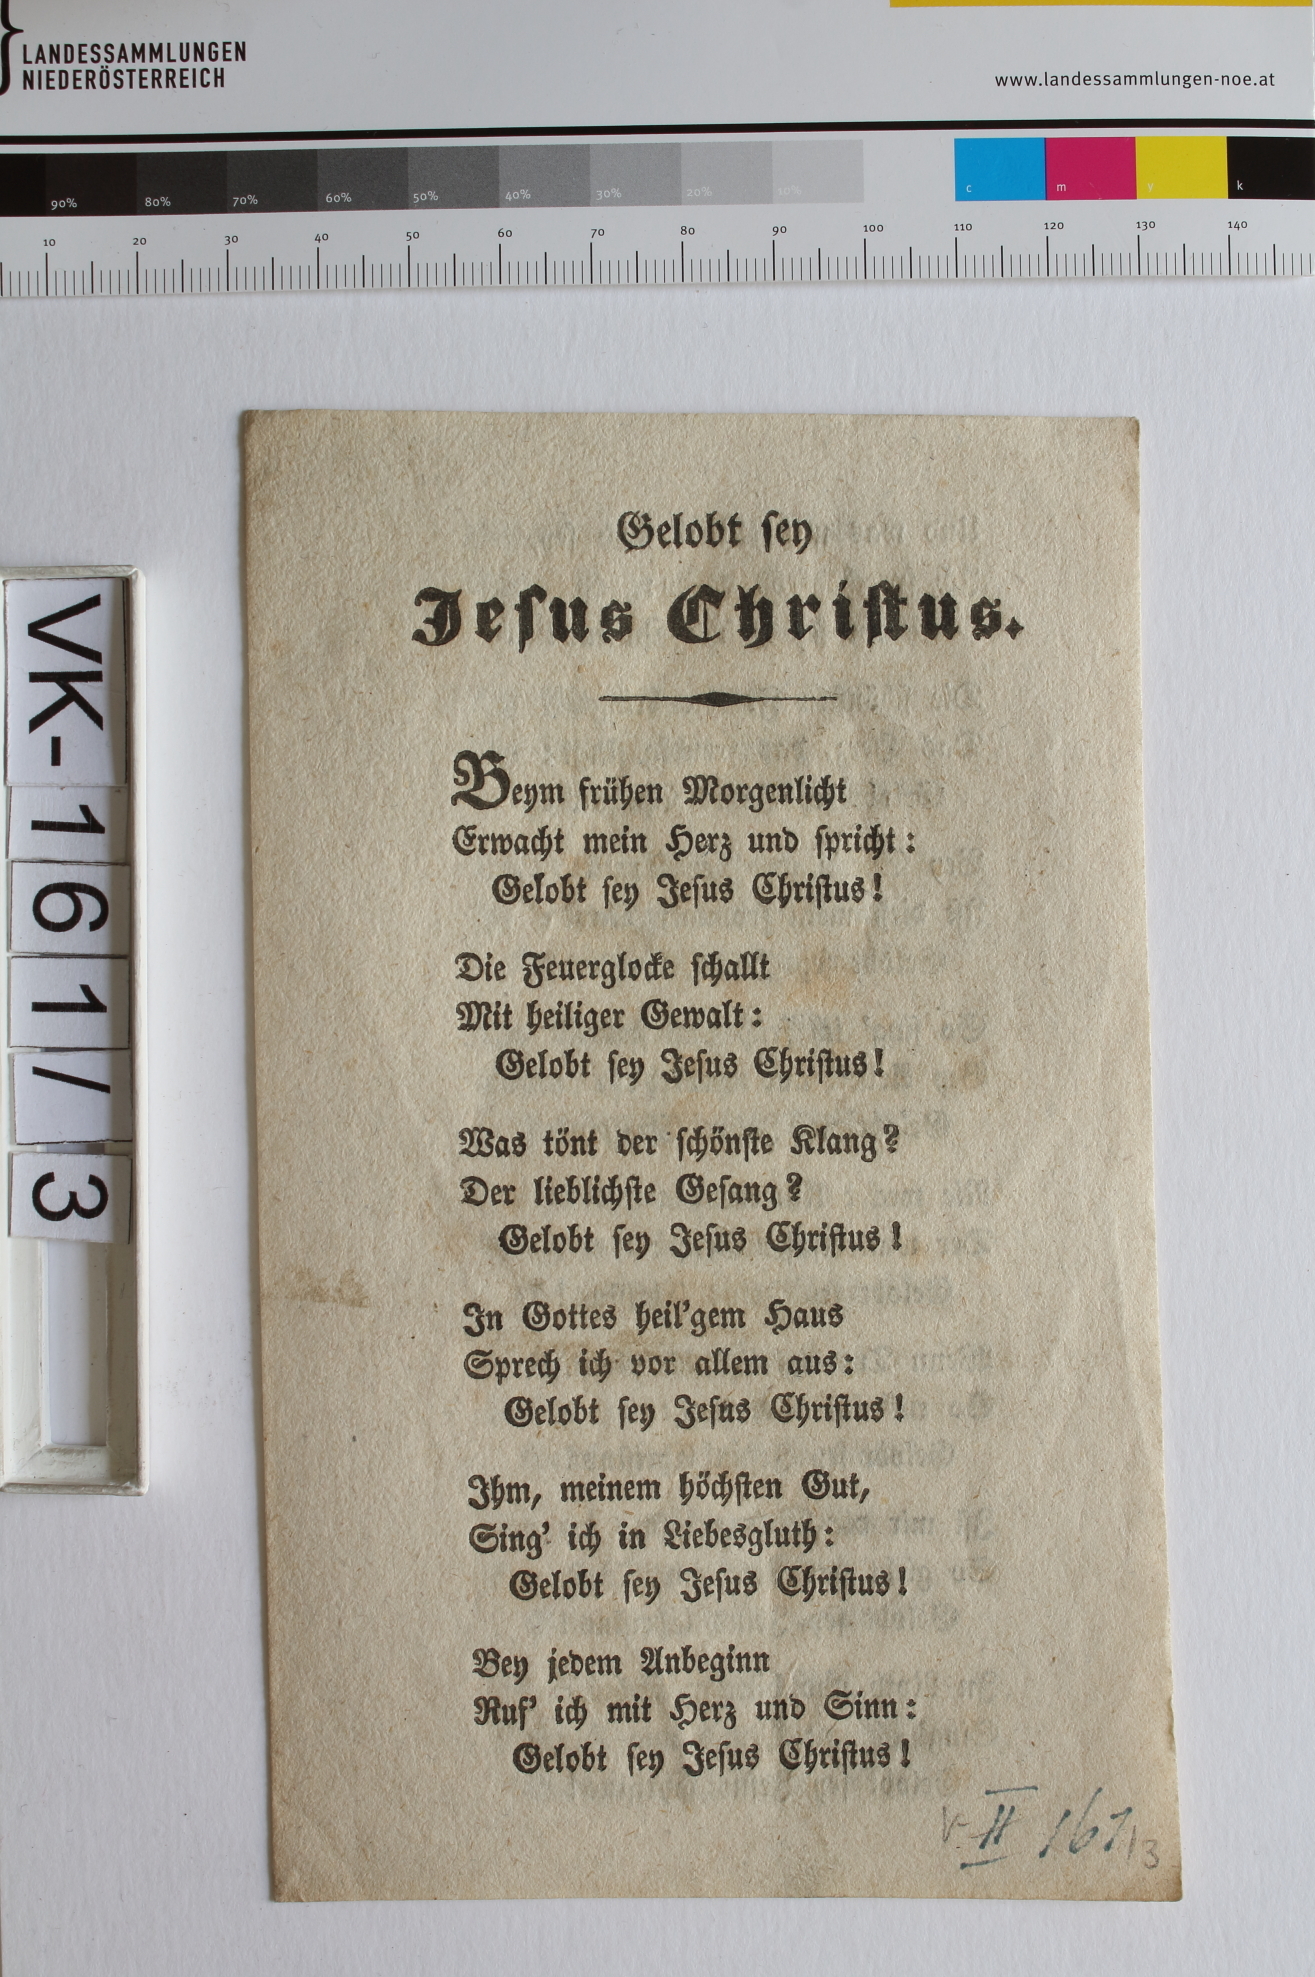 LANDESSAMMLUNGEN
NIEDERÖSTERREICH
www.landessammlungen-noe.at
90% 80% 70% 60% 50% 40% 30% 20% 10% c m y k
10 20 30 40 50 60 70 80 90 100 110 120 130 140
VK-161/3
Gelobt ſey
Jeſus Chriſtus.
Beym frühen Morgenlicht
Erwacht mein Herz und ſpricht:
Gelobt ſey Jeſus Chriſtus!
Die Feuerglocke ſchallt
Mit heiliger Gewalt:
Gelobt ſey Jeſus Chriſtus!
Was tönt der ſchönſte Klang?
Der lieblichſte Geſang?
Gelobt ſey Jeſus Chriſtus!
In Gottes heil'gem Haus
Sprech ich vor allem aus:
Gelobt ſey Jeſus Chriſtus!
Ihm, meinem höchſten Gut,
Sing' ich in Liebesgluth:
Gelobt ſey Jeſus Chriſtus!
Bey jedem Anbeginn
Ruf' ich mit Herz und Sinn:
Gelobt ſey Jeſus Chriſtus!
V- II 161/3